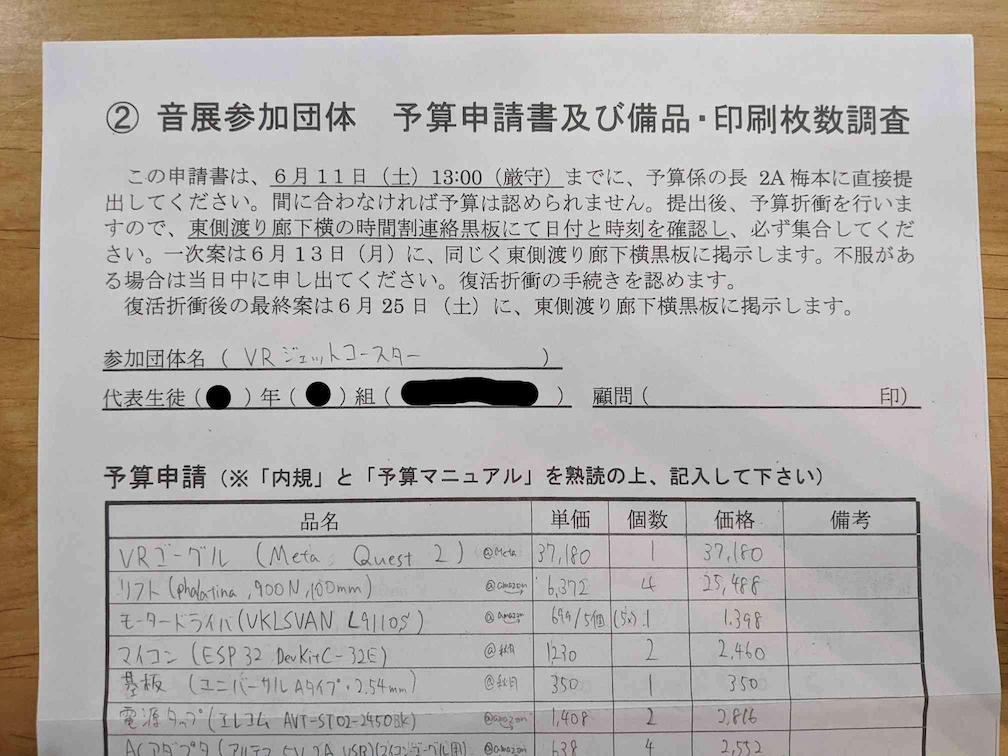 ② 音展参加団体　予算申請書及び備品・印刷枚数調査
この申請書は、6月11日（土）13:00（厳守）までに、予算係の長 2A梅本に直接提
出してください。間に合わなければ予算は認められません。提出後、予算折衝を行いま
すので、東側渡り廊下横の時間割連絡黒板にて日付と時刻を確認し、必ず集合してくだ
さい。一次案は6月13日（月）に、同じく東側渡り廊下横黒板に掲示します。不服があ
る場合は当日中に申し出てください。復活折衝の手続きを認めます。
復活折衝後の最終案は6月25日（土）に、東側渡り廊下横黒板に掲示します。
参加団体名（ VRジェットコースター ）
代表生徒（ ）年（ ）組（ ） 顧問（ 印）
予算申請（※「内規」と「予算マニュアル」を熟読の上、記入して下さい）
品名 単価 個数 価格 備考
VRゴーグル (Meta Quest 2) @Meta 37,180 1 37,180
リフト(phalatina, 900N, 100mm) @amazon 6,372 4 25,488
モータードライバ(VKLSVAN L9110S) @amazon 699/5個 (5x)1 1,398
マイコン (ESP32 DevKitC-32E) @秋月 1230 2 2,460
基板 (ユニバーサルAタイプ・2.54mm) @秋月 350 1 350
電源タップ(エレコム AVT-ST02-2450BK) @amazon 1,408 2 2,816
ACアダプタ 638 4 2,552